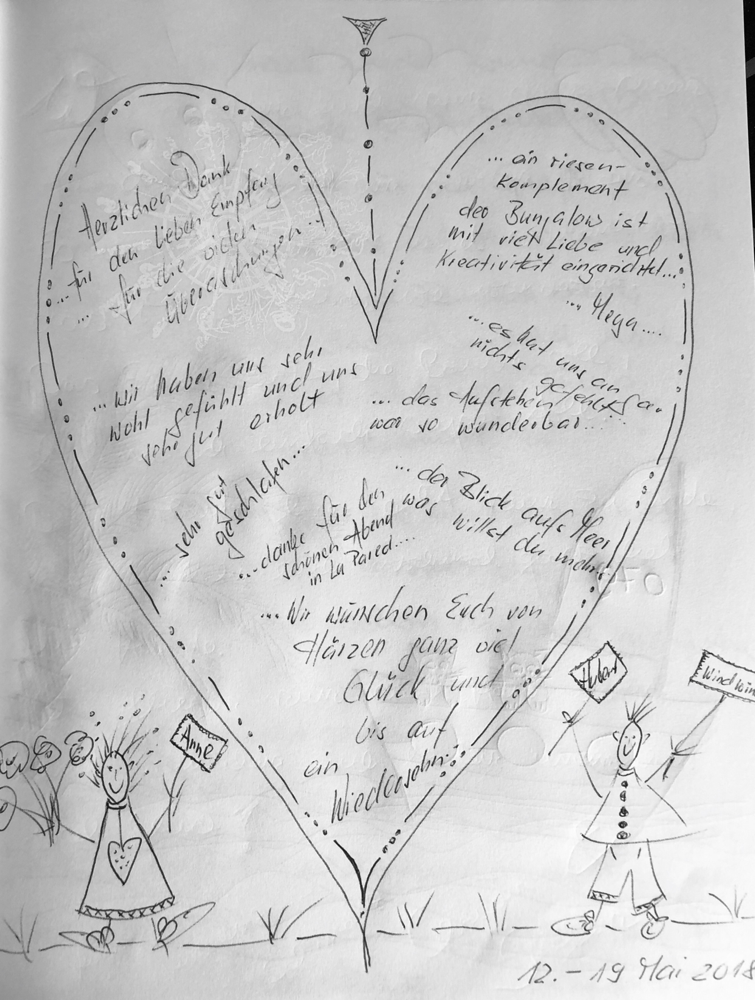 Herzlichen Dank
...für den lieben Empfang
... für die vielen
Überraschungen...
...wir haben uns sehr
wohl gefühlt und uns
sehr gut erholt
... sehr gut
geschlafen...
...danke für den
schönen Abend
in La Pared....
... ein riesen-
Komplement
der Bungalow ist
mit viel Liebe und
Kreativität eingerichtet...
... Mega....
...es hat uns an gar
nichts gefehlt
... das Aufstehen
war so wunderbar.....
... der Blick aufs Meer
was willst du mehr
... Wir wünschen Euch von
Härzen ganz viel
Glück und
bis auf
ein
Wiedersehn
Anne
Hubert
12. - 19 Mai 2018